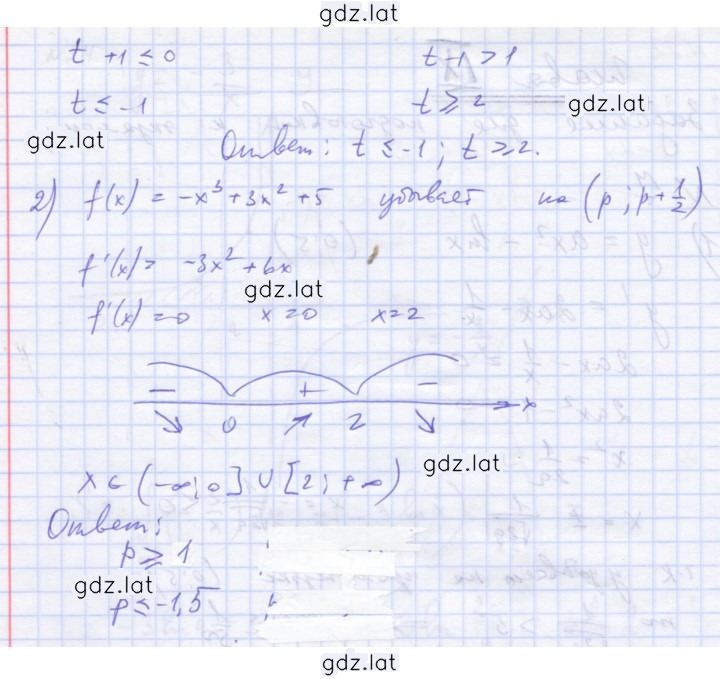 gdz.lat
t + 1 ≤ 0    t - 1 > 1
t ≤ -1    t ≥ 2
gdz.lat
gdz.lat
Ответ: t ≤ -1; t ≥ 2.
2) f(x) = -x³ + 3x² + 5 убывает на (p; p + 1/2)
f'(x) = -3x² + 6x
gdz.lat
f'(x) = 0    x = 0    x = 2
− + −
↘ 0 ↗ 2 ↘ x
gdz.lat
x ∈ (-∞; 0] ∪ [2; +∞)
Ответ:
p ≥ 1
gdz.lat
p ≤ -1,5
gdz.lat